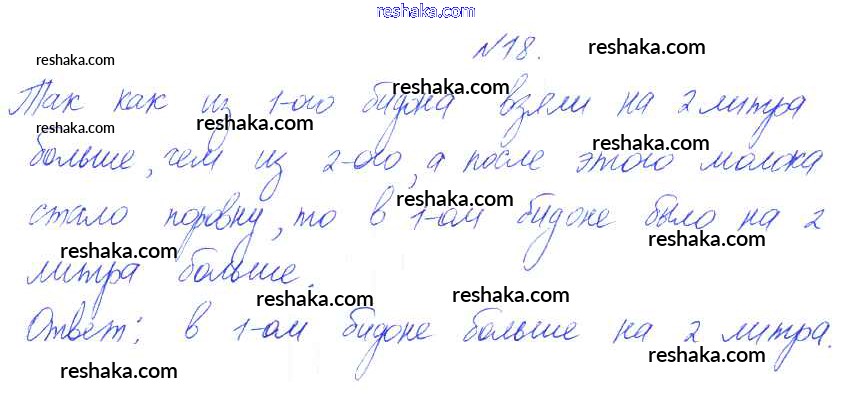 reshaka.com
№18. reshaka.com
reshaka.com
reshaka.com
Так как из 1-ого бидона взяли на 2 литра
reshaka.com reshaka.com
больше, чем из 2-ого, а после этого молока
reshaka.com
reshaka.com
стало поровну, то в 1-ом бидоне было на 2
reshaka.com reshaka.com
литра больше.
reshaka.com reshaka.com
Ответ: в 1-ом бидоне больше на 2 литра.
reshaka.com reshaka.com